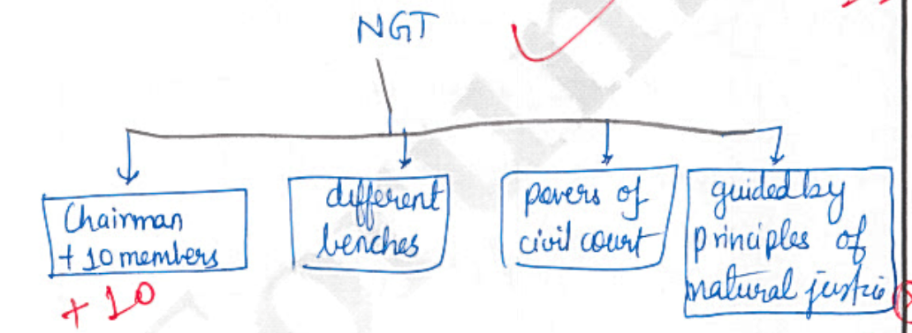 NGT
Chairman
+ 10 members
+ 10
different
benches
powers of
civil court
guided by
principles of
natural justice